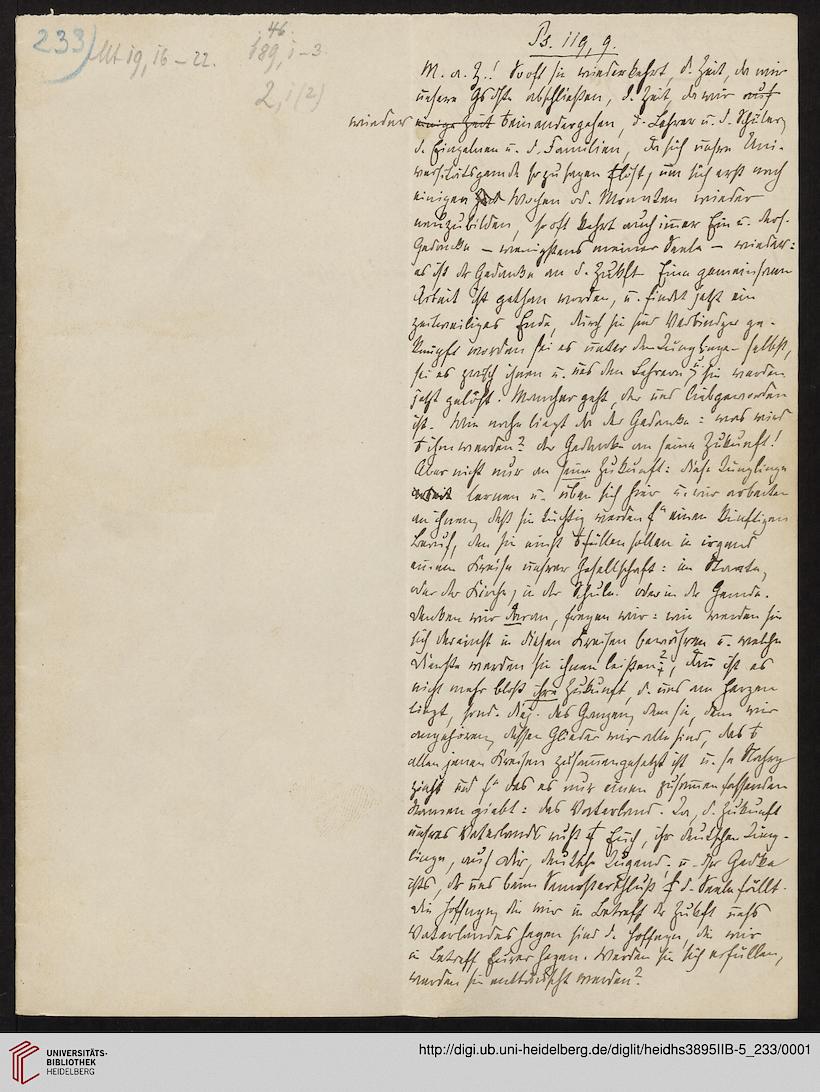 233)
Mt 19, 16 – 22.
46
189, 1 – 3.
2, 1 (2)
Ps. 119, 9.
M. a. Z.! So oft sie wiederkehrt, d. Zeit, da wir
unsere abschließen, d. Zeit, da wir auf
wieder einige Zeit auseinandergehen, d. Lehrer u. d. Schüler,
d. Einzelnen u. d. Familien, da sich unsre Uni-
versitätsgemde sozusagen löst, um sich erst nach
einigen Wochen od. Monaten wieder
neuzubilden, so oft kehrt auch immer Ein u. ders.
Gedanke – wenigstens meiner Seele – wieder:
es ist der Gedanke an d. Zukft. Eine gemeinsame
Arbeit ist gethan worden, u. findet jetzt ein
zeitweiliges Ende, durch sie sind Verbindgen ge-
knüpft worden sei es unter den Jünglingen selbst,
sei es zwisch ihnen u. uns den Lehrern u. sie werden
jetzt gelöst. Mancher geht, der uns lieb geworden
ist. Wie nahe liegt da der Gedanke: was wird
ihm werden? der Gedanke an seine Zukunft!
Aber nicht nur an seine Zukunft: diese Jünglinge
lernen u. üben sich hier u. wir arbeiten
an ihnen, daß sie tüchtig werden f. einen künftigen
Beruf, den sie einst erfüllen sollen in irgend
einem Kreise unsrer Gesellschaft: im Staate,
oder der Kirche, in der Schule oder in der Gemde.
Denken wir daran, fragen wir: wie werden sie
sich dereinst in diesen Kreisen bewähren u. welche
Dienste werden sie ihnen leisten?, dann ist es
nicht mehr bloß ihre Zukunft, d. uns am Herzen
liegt, sond. diej. des Ganzen, dem sie, dem wir
angehören, dessen Glieder wir alle sind, das
allen jenen Kreisen zusammengesetzt ist u. s. Nahrg
zieht und f. das es nur einen zusammenfassenden
Namen giebt: das Vaterland. Ja, d. Zukunft
unsres Vaterlands ruht auf Euch, ihr deutschen Jüng-
linge, auf dir, deutsche Jugend, u. der Gedke
ists, der uns beim Semesterschluß d. Seele füllt.
Die Hoffngen, die wir in Betreff der Zukft unsres
Vaterlandes hegen sind d. Hoffngen, die wir
in Betreff Eurer hegen. Werden sie sich erfüllen,
werden sie enttäuscht werden?
UNIVERSITÄTS-
BIBLIOTHEK
HEIDELBERG
http://digi.ub.uni-heidelberg.de/diglit/heidhs3895IIB-5_233/0001